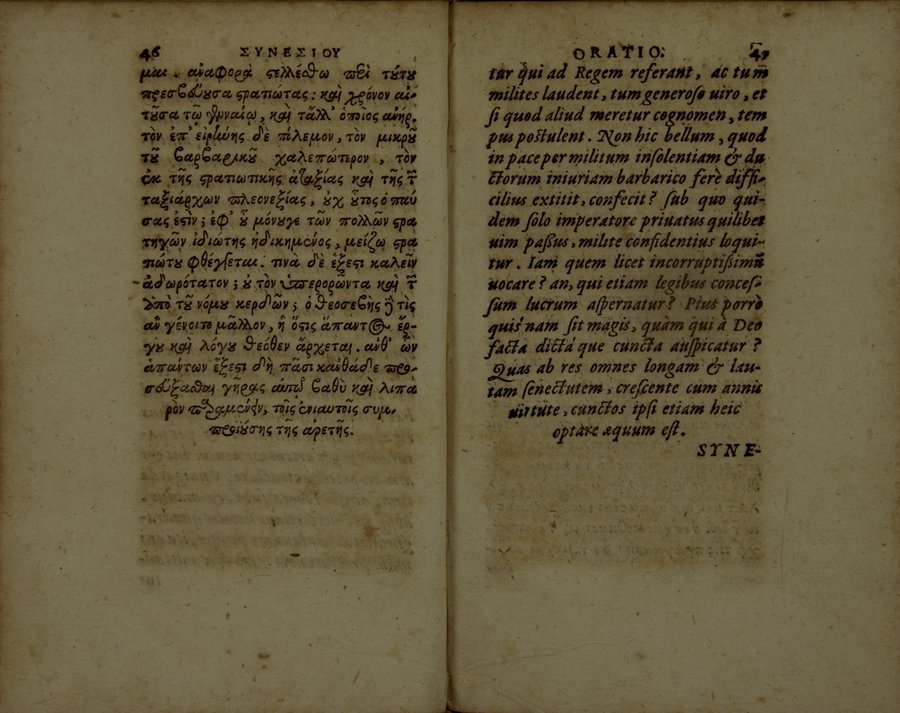 46 ΣΥΝΕΣΙΟΥ
μαι. ἀναφορὰ στελλέσθω περὶ τούτου
πρεσβεύουσα στρατιώτας: καὶ χρόνον αἰ-
τοῦσα τῷ γενναίῳ, καὶ τἄλλ' ὁποῖος ἀνήρ.
τὸν ἐπ' εἰρήνης δὲ πόλεμον, τὸν μικροῦ
τοῦ βαρβαρικοῦ χαλεπώτερον, τὸν
ἐκ τῆς στρατιωτικῆς ἀταξίας καὶ τῆς τῶν
ταξιάρχων πλεονεξίας, οὐχ οὗτος ὁ παύ
σας ἐστίν; ἐφ' οὗ μόνου γε τῶν πολλῶν στρα
τηγῶν ἰδιώτης ἠδικημένος, μεῖζω στρα
τιώτου φθέγξεται. τινὰ δὲ ἔξεστι καλεῖν
ἀδωρότατον; οὐ τὸν ὑπερορῶντα καὶ τῶν
ὑπὸ τοῦ νόμου κερδῶν; ὁ θεοσεβὴς δὲ τίς
ἂν γένοιτο μᾶλλον, ἢ ὅστις ἅπαντος ἔρ-
γου καὶ λόγου θεόθεν ἄρχεται. ἀνθ' ὧν
ἁπάντων ἔξεστι δὴ πᾶσι κἀνθάδε προ-
σεύξασθαι γῆρας αὐτῷ βαθὺ καὶ λιπα
ρὸν τοῖς ἐνιαυτοῖς συμ-
προϊούσης τῆς ἀρετῆς.
ORATIO. 47
tur qui ad Regem referant, ac tum
milites laudent, tum generoso uiro, et
si quod aliud meretur cognomen, tem
pus postulent. Non hic bellum, quod
in pace per militum insolentiam & du
ctorum iniuriam barbarico ferè diffi-
cilius extitit, confecit? sub quo qui-
dem solo imperatore priuatus quilibet
uim passus, milite confidentius loqui-
tur. Iam quem licet incorruptissimū
uocare? an, qui etiam legibus conces-
sum lucrum aspernatur? Pius porrò
quis nam sit magis, quàm qui à Deo
facta dictáque cuncta auspicatur?
Quas ab res omnes longam & lau-
tam senectutem, crescente cum annis
uirtute, cunctos ipsi etiam heic
optare æquum est.
SYNE-